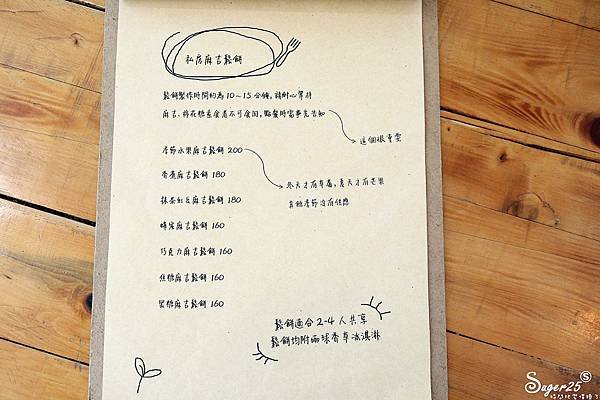 私房麻吉鬆餅
鬆餅製作時間約為10～15分鐘，請耐心等待
麻吉、棉花糖素食者不可食用，點餐時需事先告知
這個很重要
季節水果麻吉鬆餅 200
香蕉麻吉鬆餅 180
冬天才有草莓，夏天才有芒果
其他季節沒有任性
抹茶紅豆麻吉鬆餅 180
蜂蜜麻吉鬆餅 160
巧克力麻吉鬆餅 160
焦糖麻吉鬆餅 160
黑糖麻吉鬆餅 160
鬆餅適合2-4人共享
鬆餅均附兩球香草冰淇淋
Suger25 S